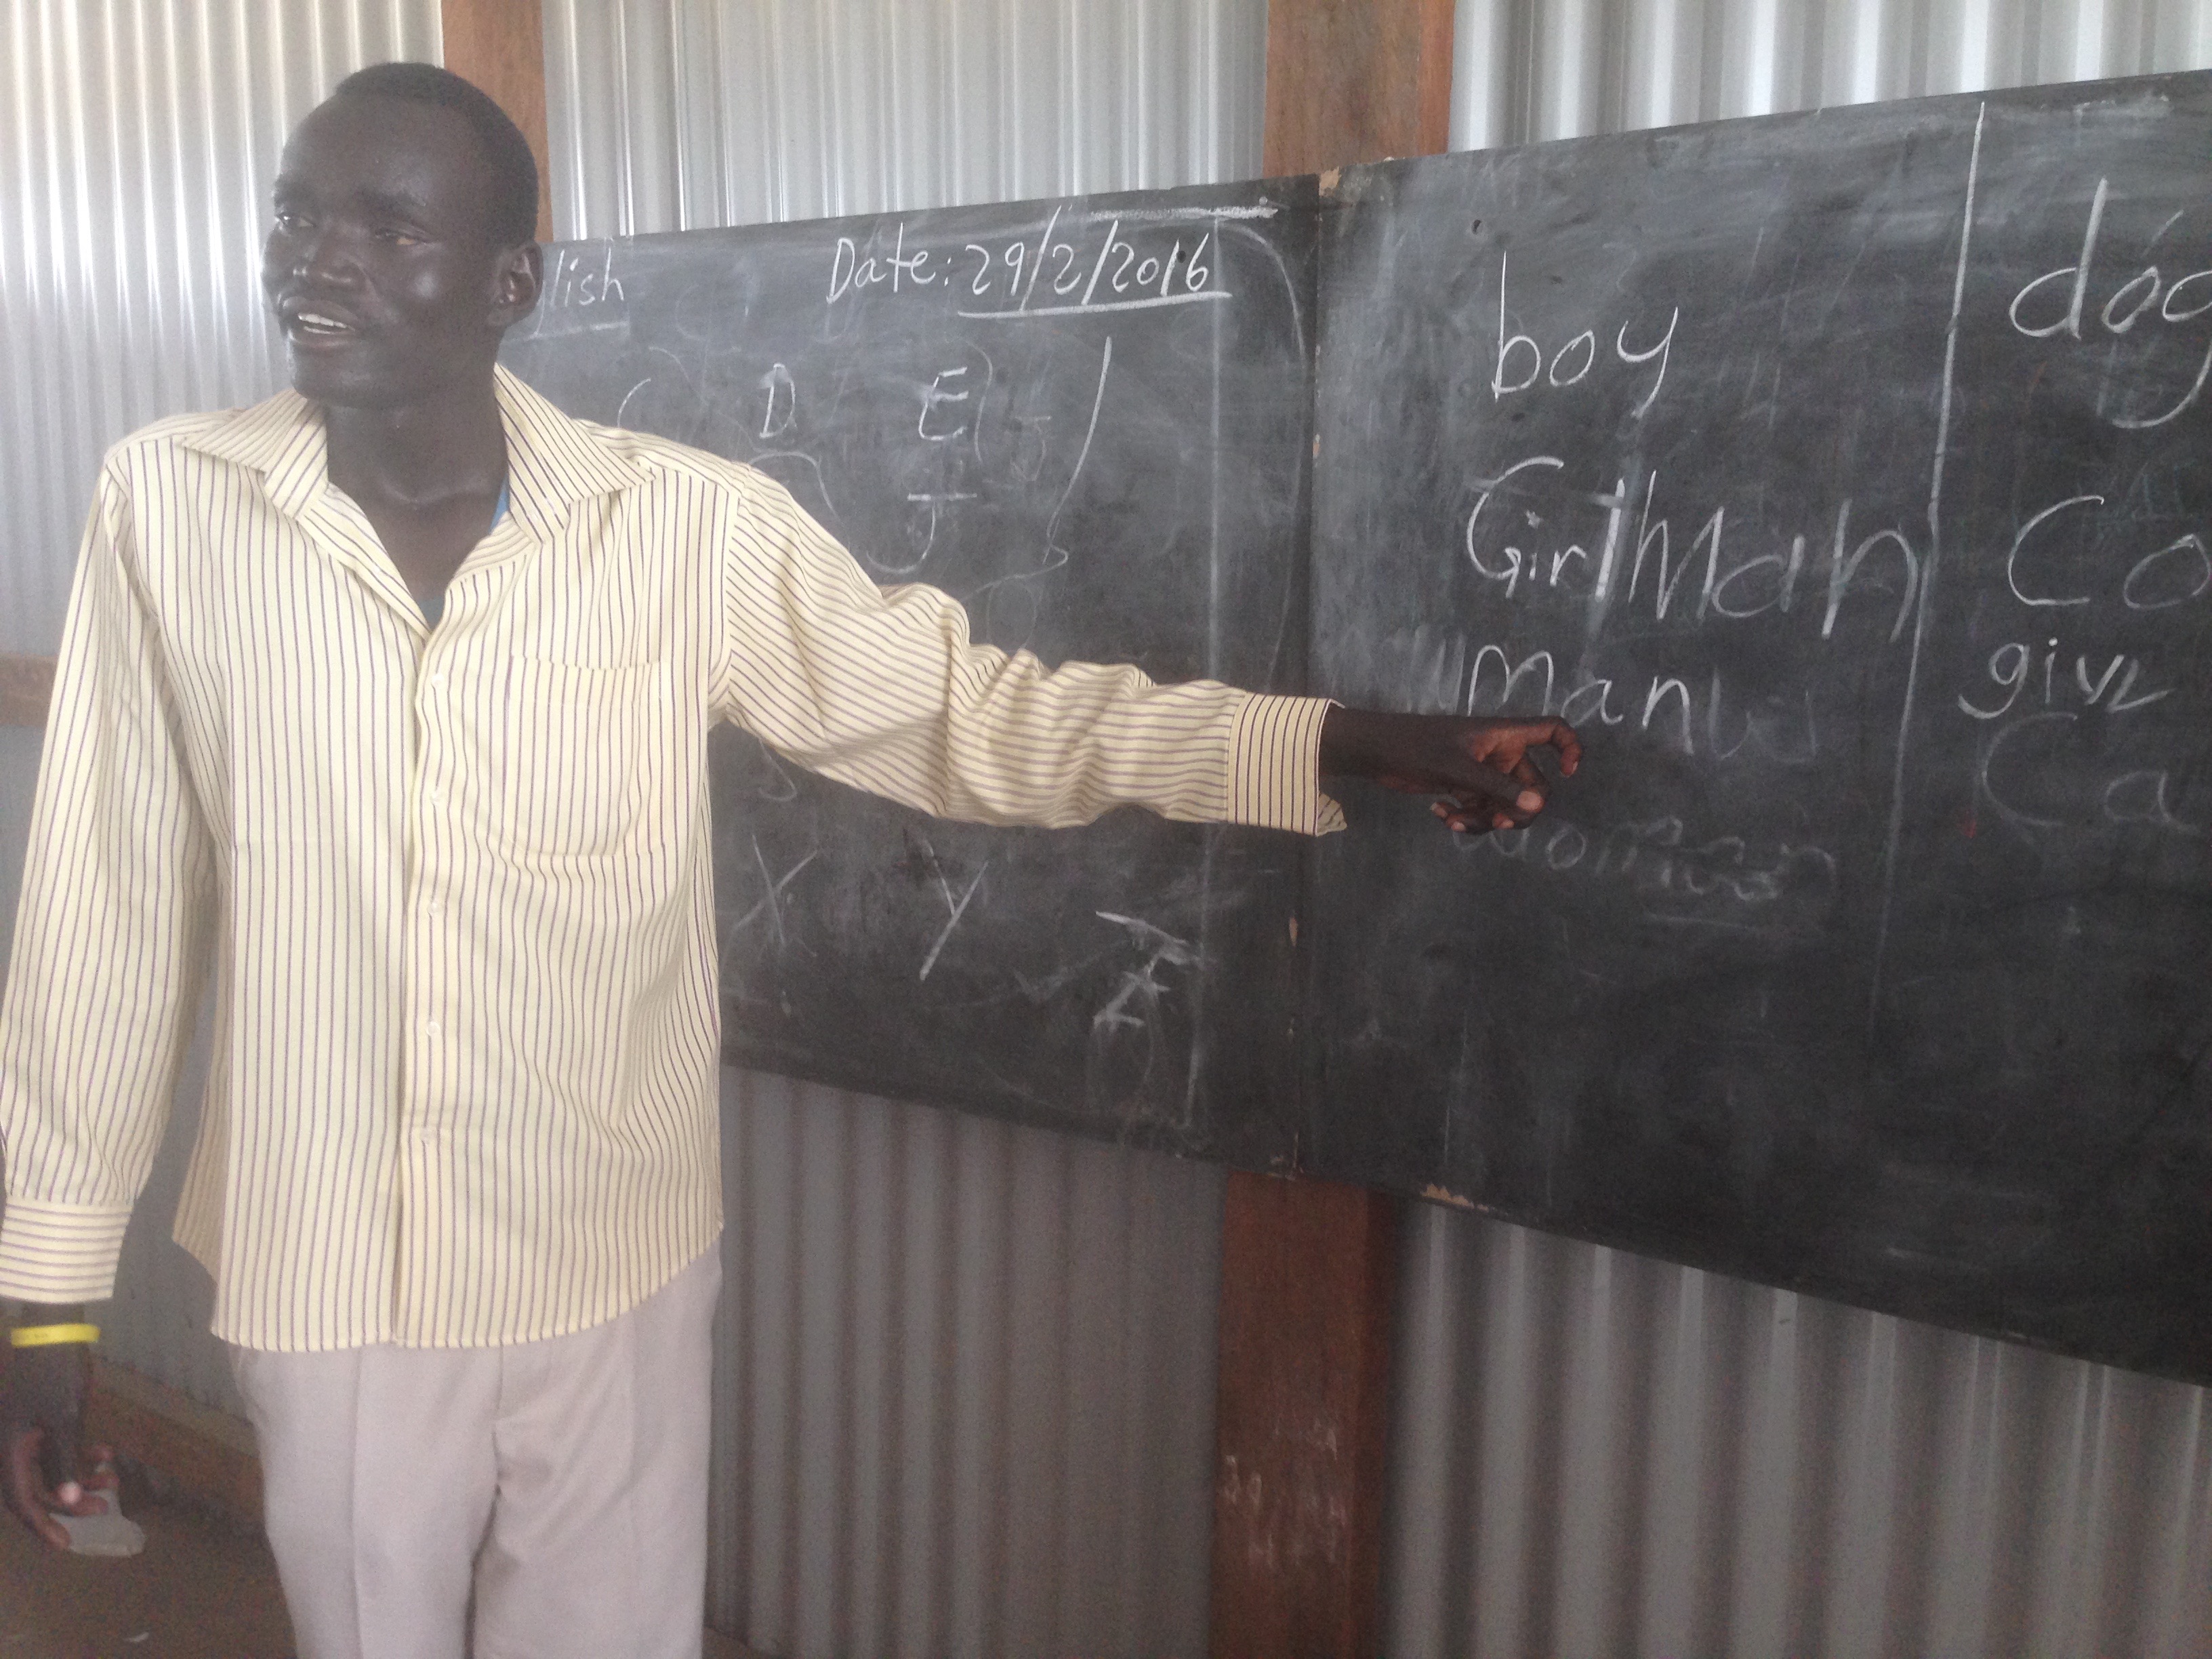 lish Date: 29/2/2016
C D E
J
X Y Z
Z
boy
Girl Man
Man
woman
dog
Co
give
Ca